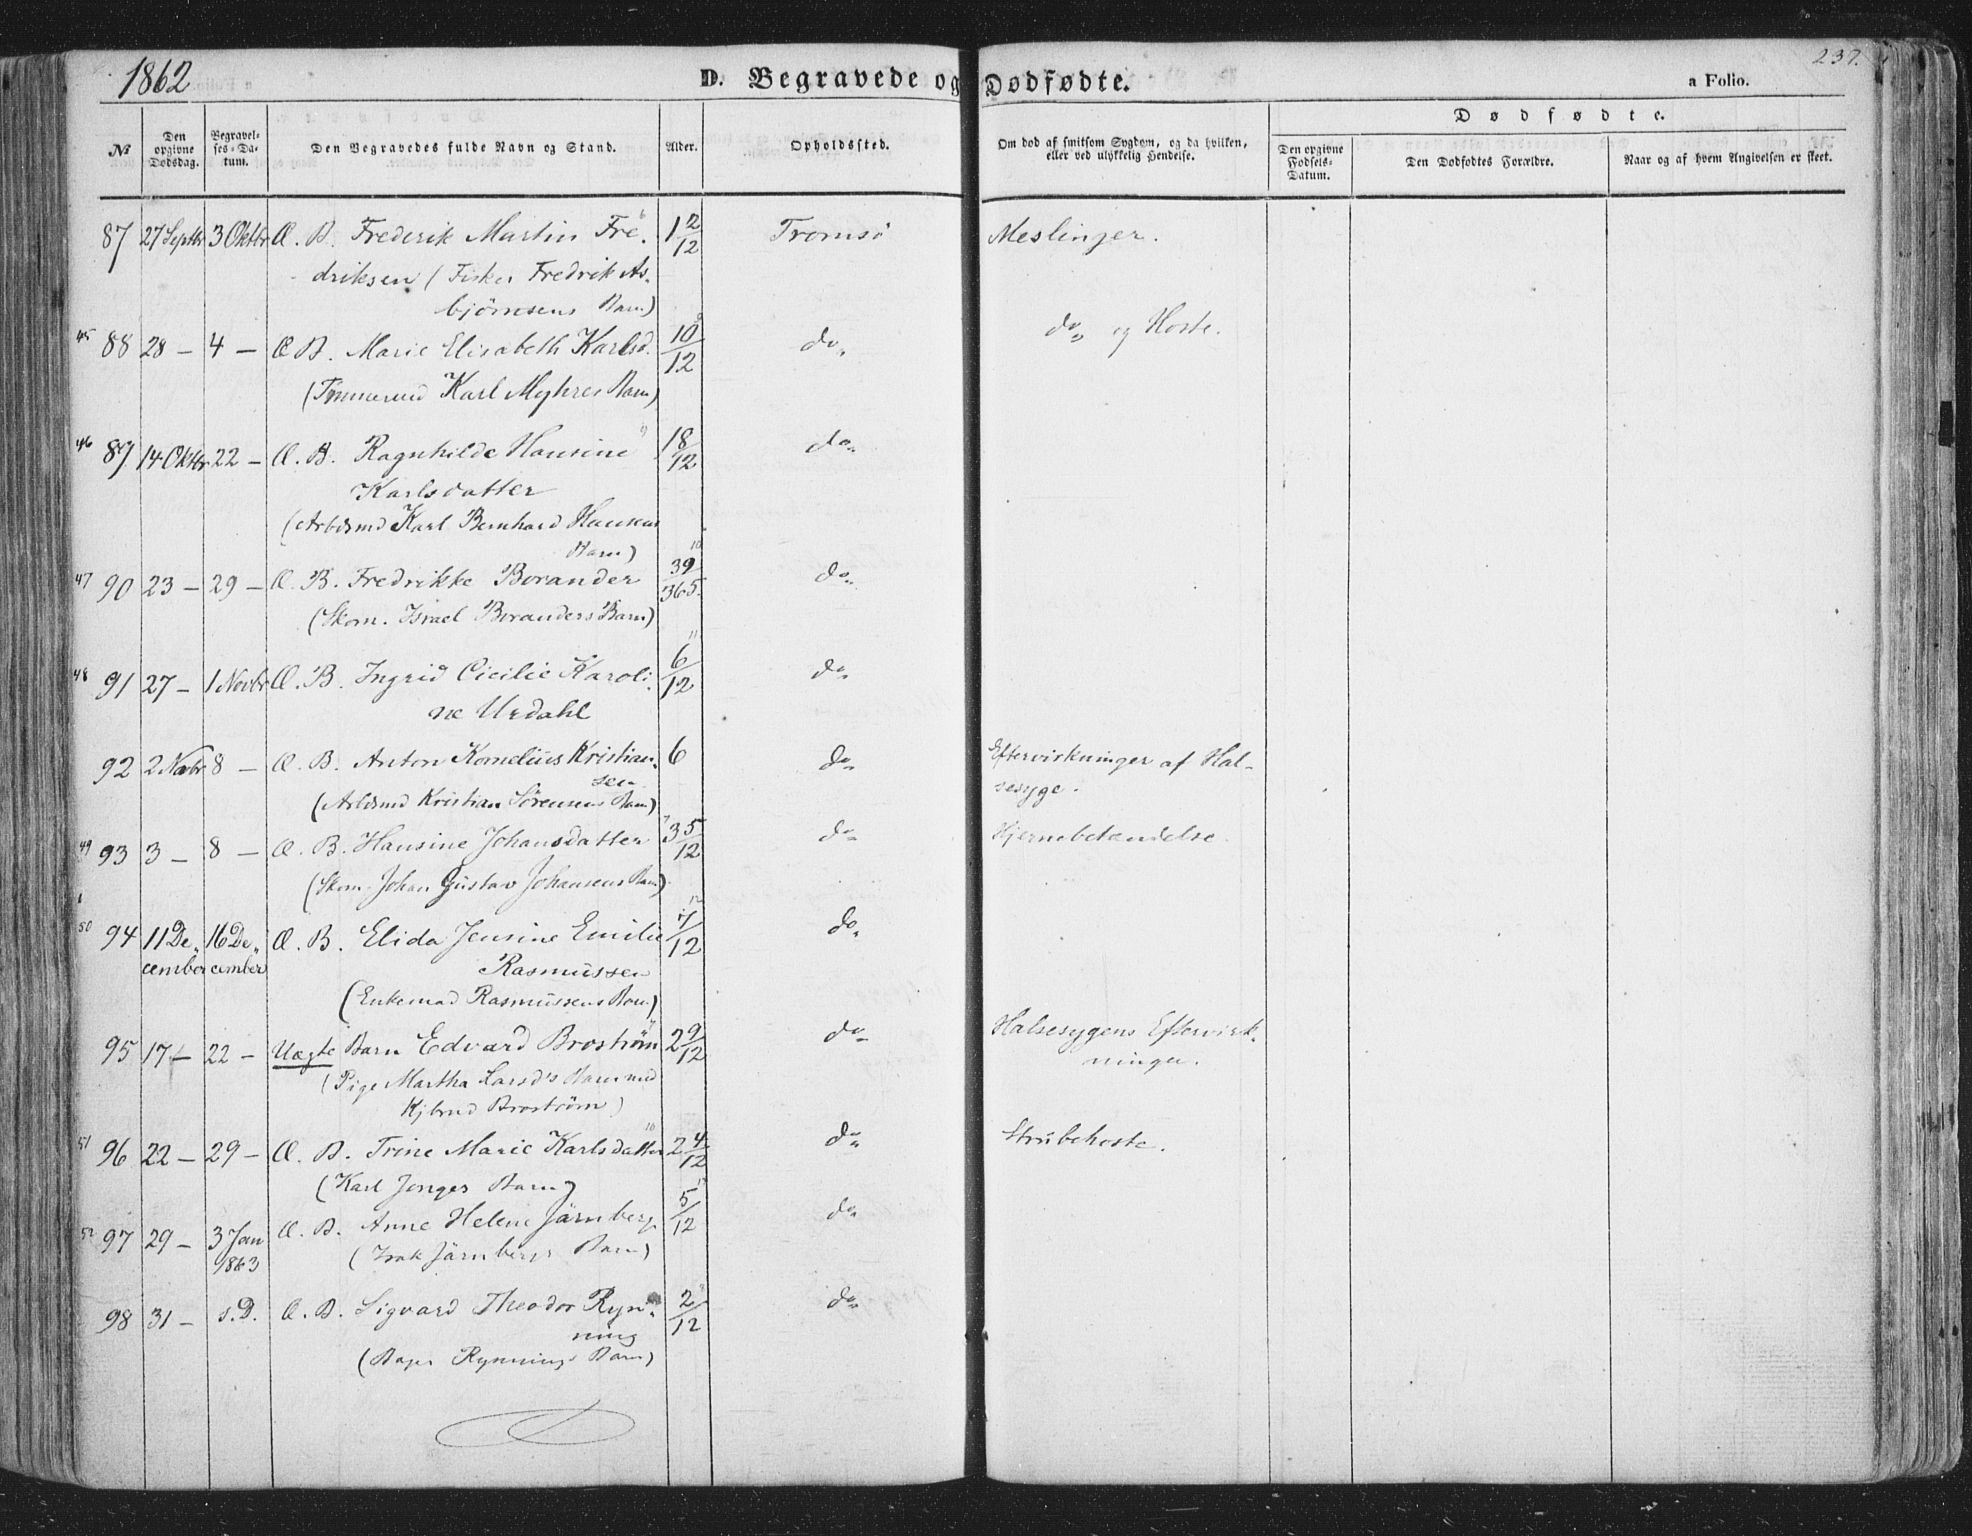 1862 D. Begravede og Dødfødte. a Folio. 237.
Dødfødte.
No Den opgivne Dødsdag. Begravelses-Datum. Den Begravedes fulde Navn og Stand. Alder. Opholdssted. Om død af smitsom Sygdom, og da hvilken, eller ved ulykkelig Hendelse. Den opgivne Fødsels-Datum. Den Dødfødtes Forældre. Naar og af hvem Angivelsen er skeet.
87 27 Septbr 3 Oktbr Æ. B. Frederik Martin Fre- 1 2/12 Tromsø Meslinger.
driksen (Fisker Fredrik As-
bjørnsens Barn)
45 88 28 — 4 — Æ B. Marie Elisabeth Karlsd. 10/12 do„ do„ og Hoste.
(Tømmermd Karl Myhres Barn)
46 89 14 Oktbr 22 — Æ. B. Ragnhilde Hansine 18/12 do„
Karlsdatter
(Arbdsmd Karl Bernhard Hansens
Barn)
47 90 23 — 29 — Æ. B. Fredrikke Borander 39/365. do„
(Skom. Israel Boranders Barn)
48 91 27 — 1 Novbr Æ. B. Ingrid Cicilie Karoli- 6/12 do„
ne Urdahl
92 2 Novbr 8 — Æ. B. Anton Kornelius Kristian- 6 do„ Eftervirkninger af Hal-
sen sesyge.
(Arbdsmd Kristian Sørensens Barn)
49 93 3 — 8 — Æ. B. Hansine Johansdatter 3 5/12 do„ Hjernebetændelse.
(Skom. Johan Gustav Johansens Barn)
50 94 11 De- 16 De- Æ. B. Elida Jensine Emilie 7/12 do„
cember cember Rasmussen
(Enkemad Rasmussens Barn)
95 17 — 22 — Uægte Barn Edvard Brostrøm 2 9/12 do„ Halsesygens Eftervirk-
(Pige Martha Larsd's Barn med ninger.
Kjbmd Brostrøm)
51 96 22 — 29 — Æ. B. Trine Marie Karlsdatter 2 4/12 do„ Strubehoste.
(Karl Jonges Barn)
52 97 29 — 3 Jan Æ. B. Anne Helene Järnberg 5/12 do„
1863 (Isak Järnbergs Barn)
98 31 — s. D. Æ. B. Sigvard Theodor Ryn- 2/12 do„
ning
(Bager Rynnings Barn)